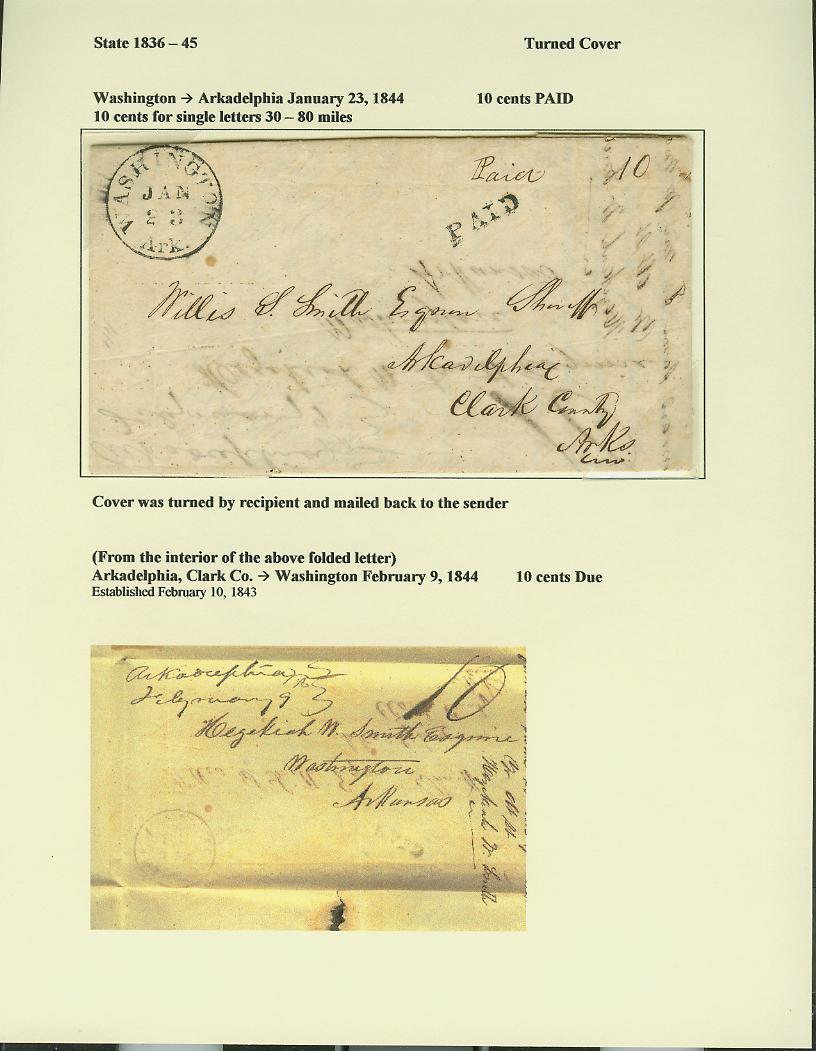 State 1836 – 45 Turned Cover
Washington → Arkadelphia January 23, 1844 10 cents PAID
10 cents for single letters 30 – 80 miles
WASHINGTON
JAN
23
Ark.
Paid 10
PAID
Willis S. Smith Esqr Sheriff
Arkadelphia
Clark County
Arks
Cover was turned by recipient and mailed back to the sender
(From the interior of the above folded letter)
Arkadelphia, Clark Co. → Washington February 9, 1844 10 cents Due
Established February 10, 1843
Arkadelphia
February 9
10
Hezekiah W. Smith Esquire
Washington
Arkansas
Hezekiah W. Smith